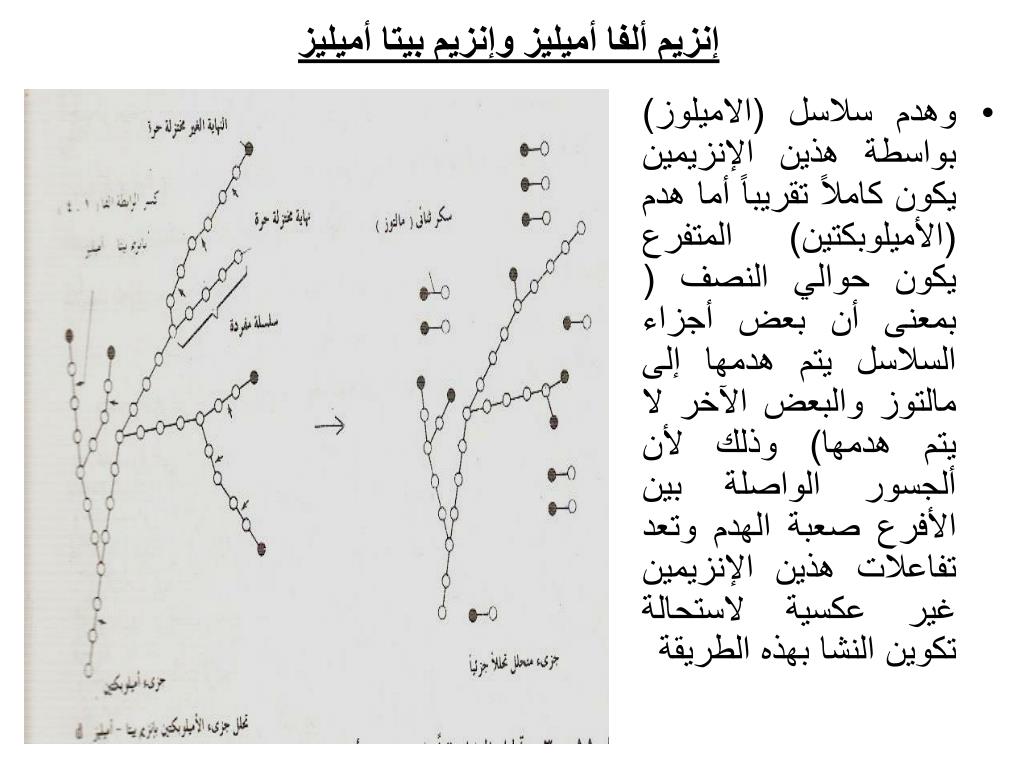 إنزيم ألفا أميليز وإنزيم بيتا أميليز
• وهدم سلاسل (الاميلوز)
بواسطة هذين الإنزيمين
يكون كاملاً تقريباً أما هدم
(الأميلوبكتين) المتفرع
يكون حوالي النصف (
بمعنى أن بعض أجزاء
السلاسل يتم هدمها إلى
مالتوز والبعض الآخر لا
يتم هدمها) وذلك لأن
ألجسور الواصلة بين
الأفرع صعبة الهدم وتعد
تفاعلات هذين الإنزيمين
غير عكسية لاستحالة
تكوين النشا بهذه الطريقة
النهاية الغير مختزلة حرة
كسر الرابطة الفا
بانزيم بيتا أميليز
نهاية مختزلة حرة
سلسلة مفردة
سكر ثنائى ( مالتوز )
جزىء أميلوبكتين
جزىء متحلل تحللاً جزئياً
تحلل جزىء الأميلوبكتين بإنزيم بيتا - أميليز